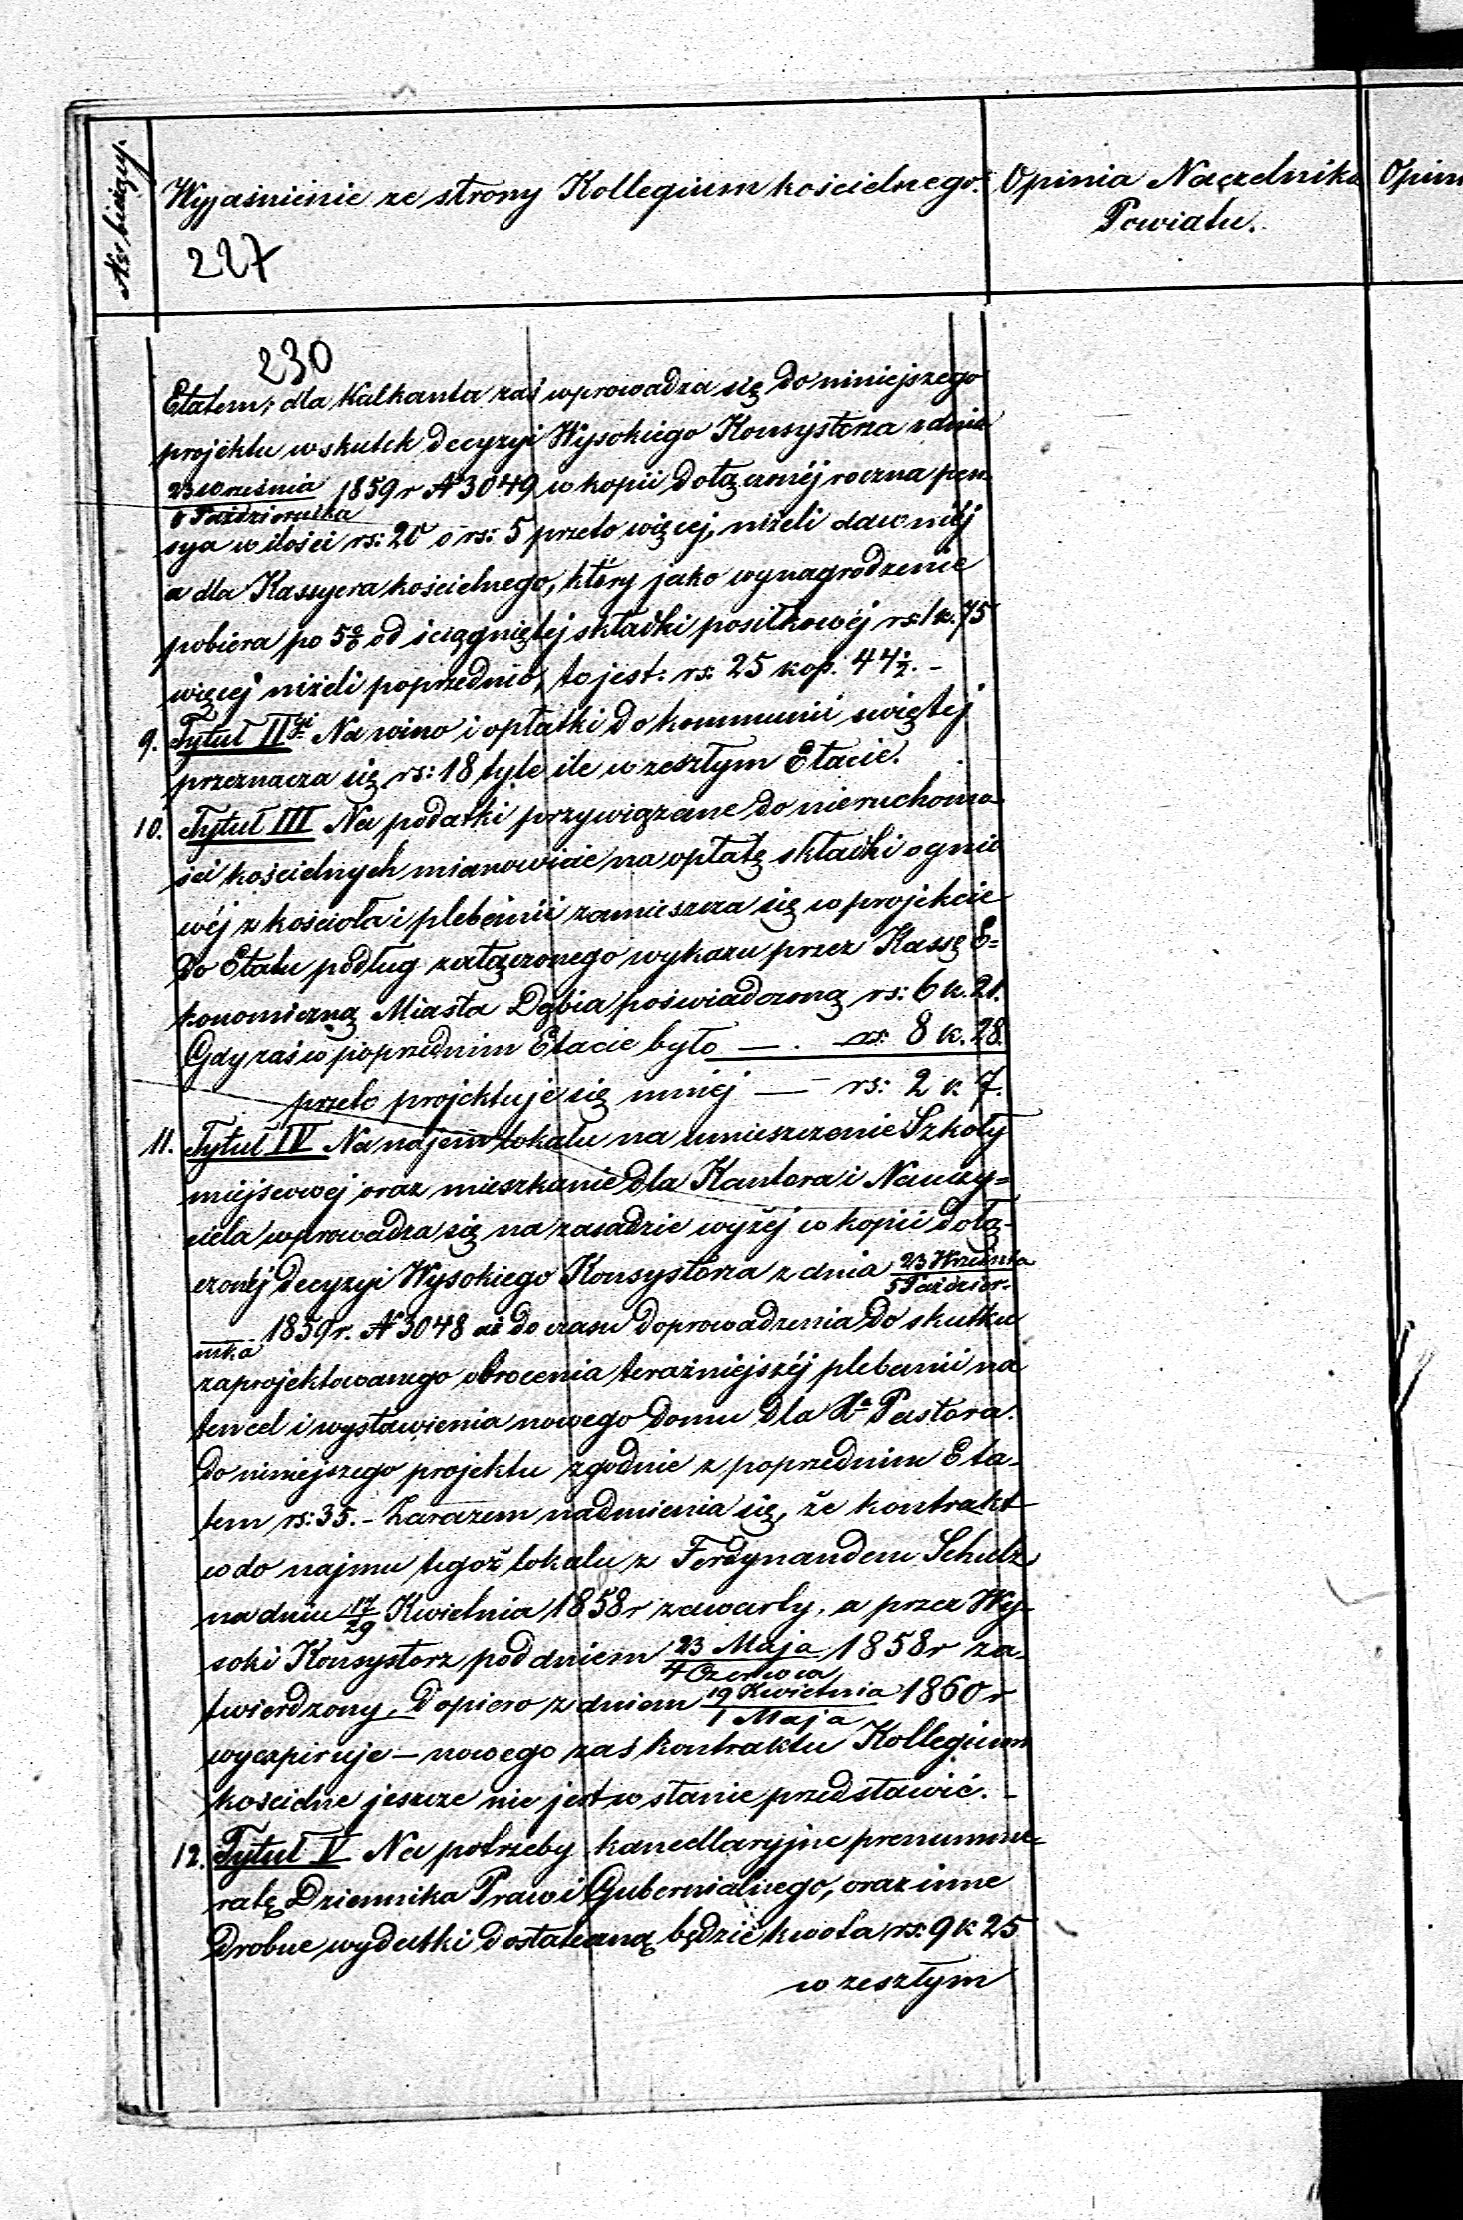 Nr bieżący.
Wyjaśnienie ze strony Kollegium kościelnego.
Opinia Naczelnika
Powiatu.
Opin
227
230
Etatem; dla Kalkanta zaś wprowadza się do niniejszego
projektu wskutek decyzyi Wysokiego Konsystorza z dnia
23 Września
Października
1859 r № 3049 w kopii dołączonéj roczna pen
sya w ilości rs: 20 o rs: 5 przeto więcej, niżeli dawniéj
a dla Kassyera kościelnego, który jako wynagrodzenie
pobiera po 5% od ściągniętej składki posiłkowéj rs. 1 k. 75
więcej niżeli poprzednio, to jest: rs: 25 kop. 44½. –
9. Tytuł II Na wino i opłatki do kommunii świętej
przeznacza się rs: 18 tyle ile w zeszłym Etacie.
10. Tytuł III Na podatki przywiązane do nieruchomo
ści kościelnych mianowicie na opłatę składki ognio
wéj z kościoła i plebanii zamieszcza się w projekcie
do Etatu podług załączonego wykazu przez Kassę E=
konomiczną Miasta Dąbia poświadczoną rs: 6 k. 21.
Gdy zaś w poprzednim Etacie było — . rs: 8 k. 28.
przeto projektuje się mniej — rs: 2 k 7.
11. Tytuł IV Na najem lokalu na umieszczenie Szkoły
miejscowej oraz mieszkanie dla Kantora i Nauczy=
ciela wprowadza się na zasadzie wyżéj w kopii dołą-
czonéj decyzyi Wysokiego Konsystorza z dnia 23 Września
5 Paździer-
nika 1859 r. № 3048 aż do czasu doprowadzenia do skutku
zaprojektowanego obrócenia teraźniejszéj plebanii na
ten cel i wystawienia nowego domu dla Xa Pastora.
do niniejszego projektu zgodnie z poprzednim Eta-
tem rs: 35. – Zarazem nadmienia się, że kontrakt
co do najmu tegoż lokalu z Ferdynandem Schulz
na dniu 17/29 Kwietnia 1858 r zawarty, a przez Wy-
soki Konsystorz pod dniem 23 Maja
4 Czerwca
1858 r za-
twierdzony, Dopiero z dniem 19 Kwietnia
1 Maja
1860 r
wyexpiruje – nowego zaś kontraktu Kollegium
kościelne jeszcze nie jest w stanie przedstawić. –
12. Tytuł V Na potrzeby kancellaryjne prenumme-
ratę Dziennika Praw i Gubernialnego, oraz inne
drobne wydatki dostateczną będzie kwota rs: 9 k 25
w zeszłym